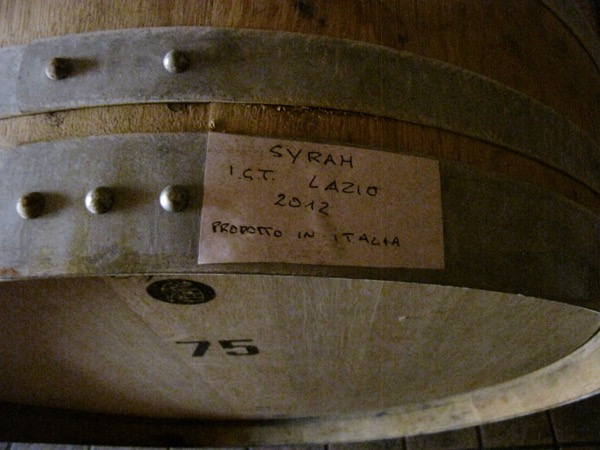 SYRAH
I.G.T. LAZIO
2012
PRODOTTO IN ITALIA
75